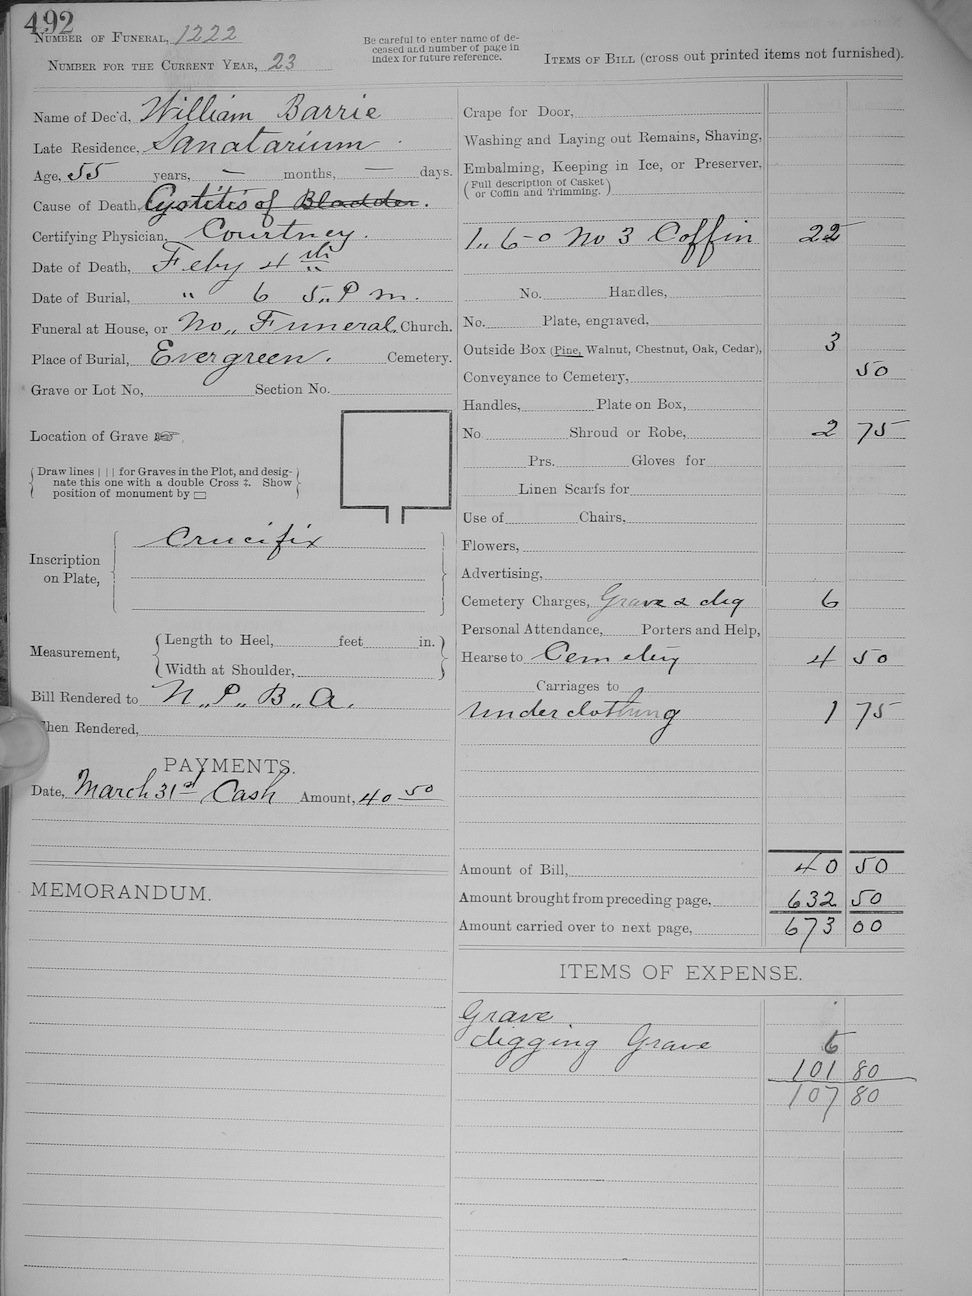 492
NUMBER OF FUNERAL, 1222
NUMBER FOR THE CURRENT YEAR, 23
Be careful to enter name of de-
ceased and number of page in
index for future reference.
ITEMS OF BILL (cross out printed items not furnished).
Name of Dec'd, William Barrie
Late Residence, Sanatarium
Age, 55 years, — months, — days.
Cause of Death, Cystitis of Bladder.
Certifying Physician, Courtney.
Date of Death, Feby 4th
Date of Burial, " 6 5,, P m.
Funeral at House, or No,, Funeral, Church.
Place of Burial, Evergreen. Cemetery.
Grave or Lot No, Section No.
Location of Grave ☞
Draw lines | | | for Graves in the Plot, and desig-
nate this one with a double Cross ‡. Show
position of monument by ▭
Inscription
on Plate,
Crucifix
Measurement,
Length to Heel, feet in.
Width at Shoulder,
Bill Rendered to N,,P,,B,,A.
When Rendered,
PAYMENTS.
Date, March 31st Cash Amount, 40 50
MEMORANDUM.
Crape for Door,
Washing and Laying out Remains, Shaving,
Embalming, Keeping in Ice, or Preserver,
(Full description of Casket
or Coffin and Trimming.)
1,, 6-0 No 3 Coffin 22
No. Handles,
No. Plate, engraved,
Outside Box (Pine, Walnut, Chestnut, Oak, Cedar), 3
Conveyance to Cemetery, 50
Handles, Plate on Box,
No Shroud or Robe, 2 75
Prs. Gloves for
Linen Scarfs for
Use of Chairs,
Flowers,
Advertising,
Cemetery Charges, Grave & dig 6
Personal Attendance, Porters and Help,
Hearse to Cemetery 4 50
Carriages to
Underclothing 1 75
Amount of Bill, 40 50
Amount brought from preceding page, 632 50
Amount carried over to next page, 673 00
ITEMS OF EXPENSE.
Grave
digging Grave 6
101 80
107 80